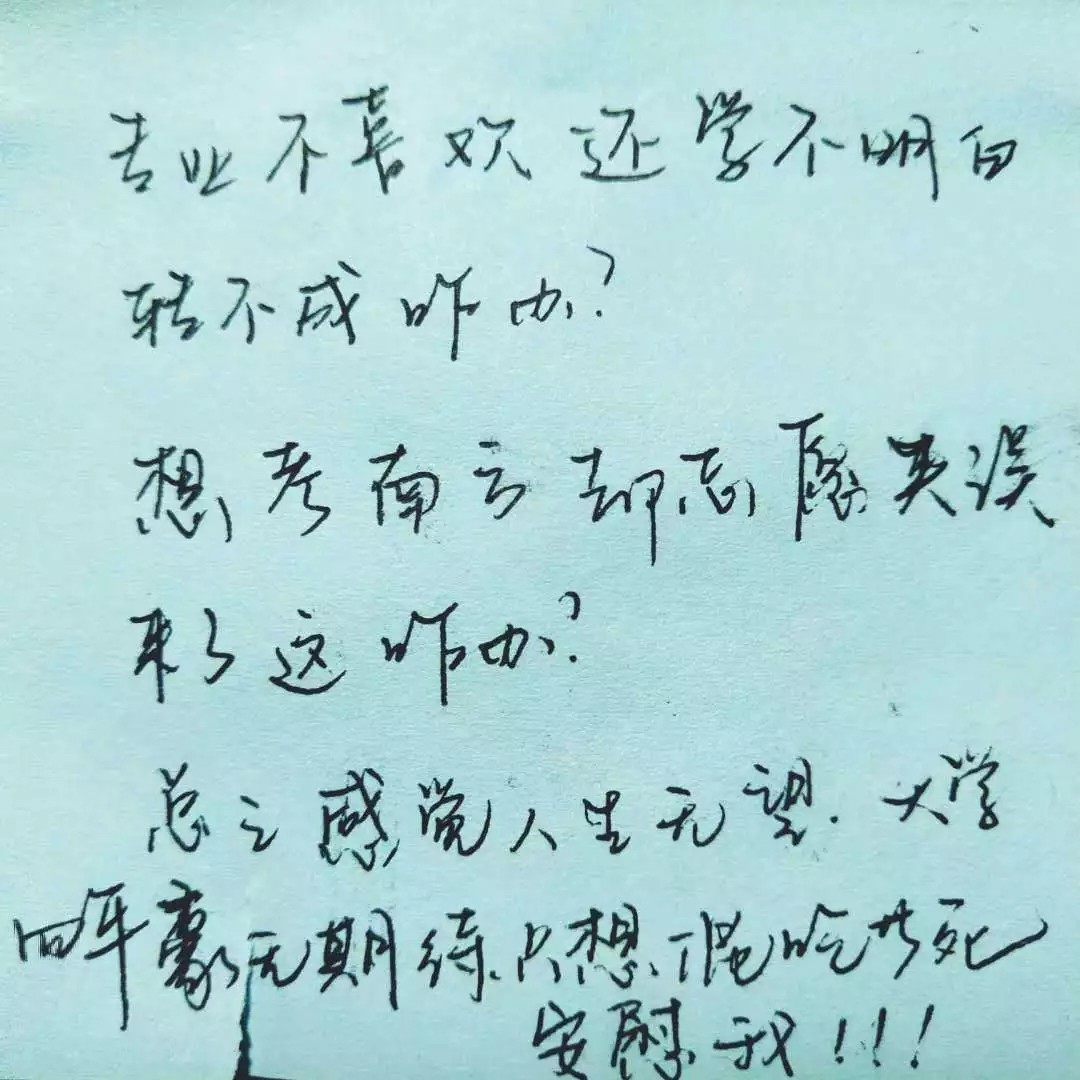 专业不喜欢还学不明白
转不成咋办?
想考南方却志愿失误
来了这咋办?
总之感觉人生无望.大学
四年毫无期待.只想混吃等死
安慰我!!!